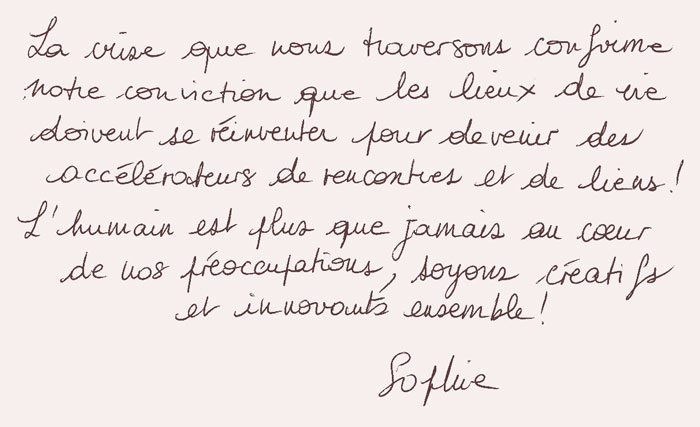 La crise que nous traversons confirme
notre conviction que les lieux de vie
doivent se réinventer pour devenir des
accélérateurs de rencontres et de liens !
L'humain est plus que jamais au cœur
de nos préoccupations, soyons créatifs
et innovants ensemble !
Sophie